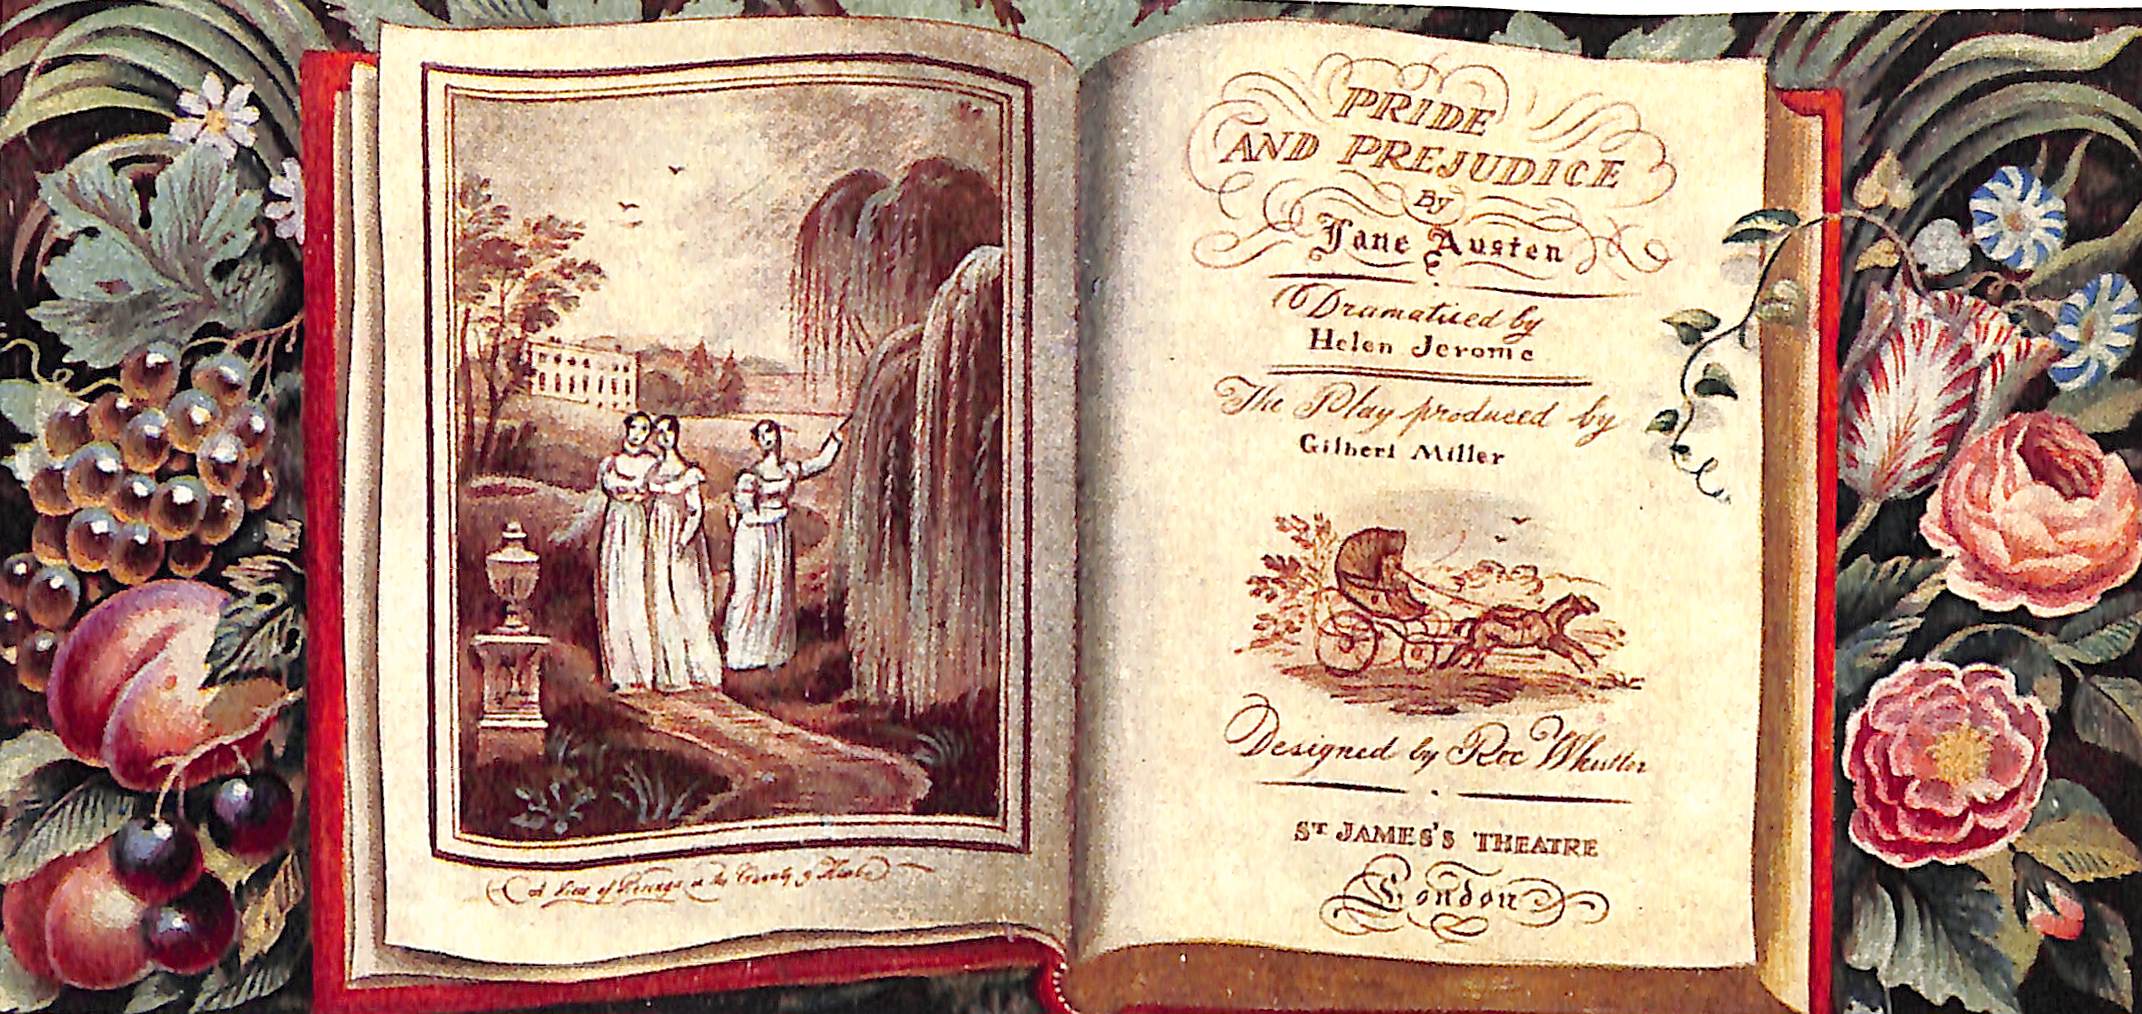 A View of in the County of
PRIDE
AND PREJUDICE
By
Jane Austen
Dramatised by
Helen Jerome
The Play produced by
Gilbert Miller
Designed by Rex Whistler
ST JAMES'S THEATRE
London